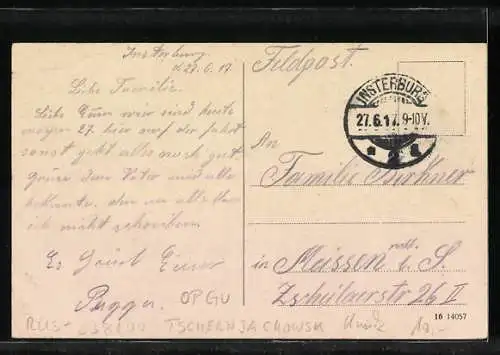 Insterburg
d 27.6.17
Feldpost.
INSTERBURG
27.6.17. 9-10 V.
Liebe Familie.
Liebe wir sind heute
morgen 27. hier auf der Fahrt
sonst geht alles noch gut
grüse den Vater und alle
bekante. den an alle kan
ich nicht schreiben.
Es Grüst Euer
An
Familie Birkner
in Meissen i. S.
Zschilaerstr 26 II
OPGU
RUS- 238100 TSCHERNJACHOWSK
16 14057